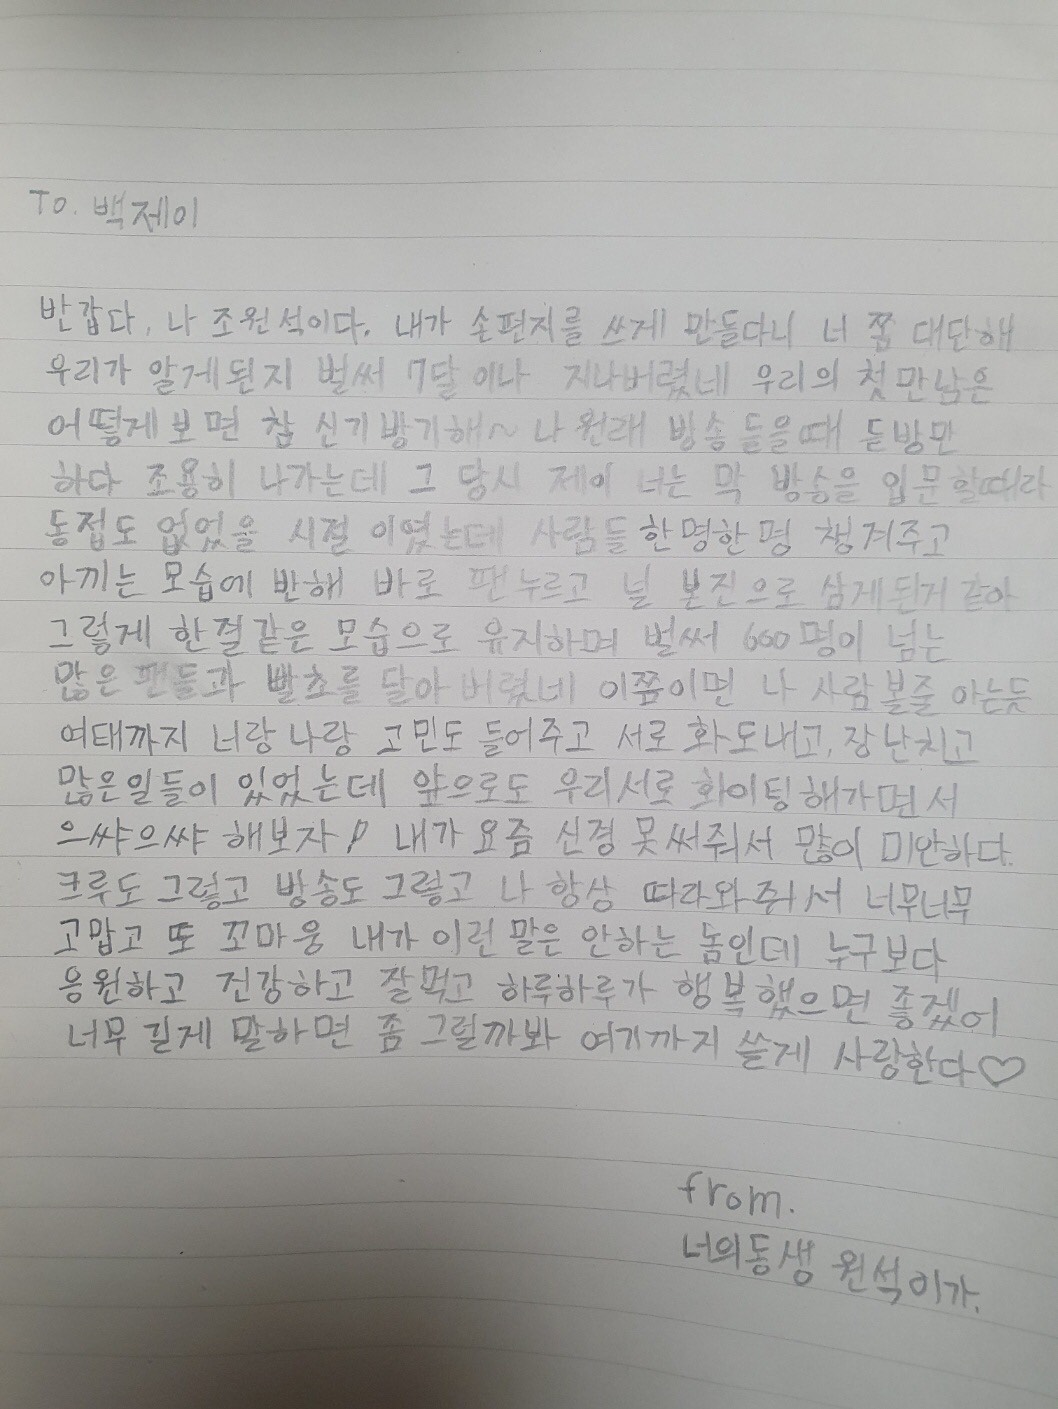 To. 백제이
반갑다, 나 조원석이다. 내가 손편지를 쓰게 만들다니 너 쫌 대단해
우리가 알게된지 벌써 7달이나 지나버렸네 우리의 첫만남은
어떻게보면 참 신기방기해~ 나 원래 방송 들을때 듣방만
하다 조용히 나가는데 그 당시 제이 너는 막 방송을 입문할때라
동접도 없었을 시절 이였는데 사람들 한명한명 챙겨주고
아끼는 모습에 반해 바로 팬누르고 널 본진으로 삼게된거 같아
그렇게 한결같은 모습으로 유지하며 벌써 600명이 넘는
많은 팬들과 빨초를 달아버렸네 이쯤이면 나 사람볼줄 아는듯
여태까지 너랑 나랑 고민도 들어주고 서로 화도내고, 장난치고
많은일들이 있었는데 앞으로도 우리서로 화이팅해가면서
으쌰으쌰 해보자! 내가 요즘 신경 못써줘서 많이 미안하다.
크루도 그렇고 방송도 그렇고 나 항상 따라와줘서 너무너무
고맙고 또 꼬마웅 내가 이런 말은 안하는 놈인데 누구보다
응원하고 건강하고 잘먹고 하루하루가 행복했으면 좋겠어
너무 길게 말하면 좀 그럴까봐 여기까지 쓸게 사랑한다♡
from.
너의동생 원석이가.